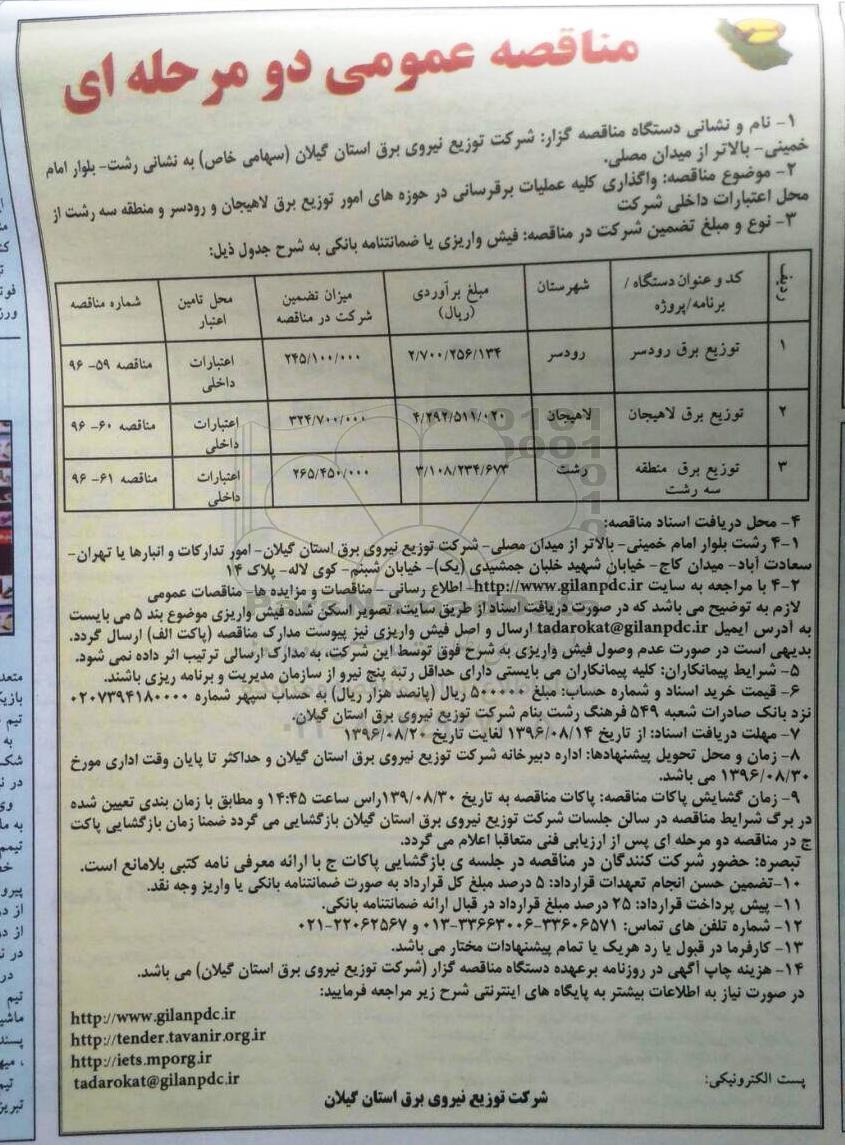 مناقصه عمومی دو مرحله ای
۱- نام و نشانی دستگاه مناقصه گزار: شرکت توزیع نیروی برق استان گیلان (سهامی خاص) به نشانی رشت- بلوار امام
خمینی- بالاتر از میدان مصلی.
۲- موضوع مناقصه: واگذاری کلیه عملیات برقرسانی در حوزه های امور توزیع برق لاهیجان و رودسر و منطقه سه رشت از
محل اعتبارات داخلی شرکت
۳- نوع و مبلغ تضمین شرکت در مناقصه: فیش واریزی یا ضمانتنامه بانکی به شرح جدول ذیل:
ردیف کد و عنوان دستگاه / برنامه/پروژه شهرستان مبلغ برآوردی (ریال) میزان تضمین شرکت در مناقصه محل تامین اعتبار شماره مناقصه
۱ توزیع برق رودسر رودسر ۲/۷۰۰/۲۵۶/۱۳۴ ۲۴۵/۱۰۰/۰۰۰ اعتبارات داخلی مناقصه ۵۹- ۹۶
۲ توزیع برق لاهیجان لاهیجان ۴/۲۹۲/۵۱۱/۰۲۰ ۳۲۴/۷۰۰/۰۰۰ اعتبارات داخلی مناقصه ۶۰- ۹۶
۳ توزیع برق منطقه سه رشت رشت ۳/۱۰۸/۲۳۴/۶۷۳ ۲۶۵/۴۵۰/۰۰۰ اعتبارات داخلی مناقصه ۶۱- ۹۶
۴- محل دریافت اسناد مناقصه:
۴-۱ رشت بلوار امام خمینی- بالاتر از میدان مصلی- شرکت توزیع نیروی برق استان گیلان- امور تدارکات و انبارها یا تهران-
سعادت آباد- میدان کاج- خیابان شهید خلبان جمشیدی (یک)- خیابان شبنم- کوی لاله- پلاک ۱۴
۴-۲ با مراجعه به سایت http://www.gilanpdc.ir- اطلاع رسانی - مناقصات و مزایده ها- مناقصات عمومی
لازم به توضیح می باشد که در صورت دریافت اسناد از طریق سایت، تصویر اسکن شده فیش واریزی موضوع بند ۵ می بایست
به آدرس ایمیل tadarokat@gilanpdc.ir ارسال و اصل فیش واریزی نیز پیوست مدارک مناقصه (پاکت الف) ارسال گردد.
بدیهی است در صورت عدم وصول فیش واریزی به شرح فوق توسط این شرکت، به مدارک ارسالی ترتیب اثر داده نمی شود.
۵- شرایط پیمانکاران: کلیه پیمانکاران می بایستی دارای حداقل رتبه پنج نیرو از سازمان مدیریت و برنامه ریزی باشند.
۶- قیمت خرید اسناد و شماره حساب: مبلغ ۵۰۰۰۰۰ ریال (پانصد هزار ریال) به حساب سپهر شماره ۰۲۰۷۳۹۴۱۸۰۰۰۰
نزد بانک صادرات شعبه ۵۴۹ فرهنگ رشت بنام شرکت توزیع نیروی برق استان گیلان.
۷- مهلت دریافت اسناد: از تاریخ ۱۳۹۶/۰۸/۱۴ لغایت تاریخ ۱۳۹۶/۰۸/۲۰
۸- زمان و محل تحویل پیشنهادها: اداره دبیرخانه شرکت توزیع نیروی برق استان گیلان و حداکثر تا پایان وقت اداری مورخ
۱۳۹۶/۰۸/۳۰ می باشد.
۹- زمان گشایش پاکات مناقصه: پاکات مناقصه به تاریخ ۱۳۹/۰۸/۳۰راس ساعت ۱۴:۴۵ و مطابق با زمان بندی تعیین شده
در برگ شرایط مناقصه در سالن جلسات شرکت توزیع نیروی برق استان گیلان بازگشایی می گردد ضمنا زمان بازگشایی پاکت
ج در مناقصه دو مرحله ای پس از ارزیابی فنی متعاقبا اعلام می گردد.
تبصره: حضور شرکت کنندگان در مناقصه در جلسه ی بازگشایی پاکات ج با ارائه معرفی نامه کتبی بلامانع است.
۱۰-تضمین حسن انجام تعهدات قرارداد: ۵ درصد مبلغ کل قرارداد به صورت ضمانتنامه بانکی یا واریز وجه نقد.
۱۱- پیش پرداخت قرارداد: ۲۵ درصد مبلغ قرارداد در قبال ارائه ضمانتنامه بانکی.
۱۲- شماره تلفن های تماس: ۳۳۶۰۶۵۷۱-۳۳۶۶۳۰۰۶-۰۱۳ و ۲۲۰۶۲۵۶۷-۰۲۱
۱۳- کارفرما در قبول یا رد هریک یا تمام پیشنهادات مختار می باشد.
۱۴- هزینه چاپ آگهی در روزنامه برعهده دستگاه مناقصه گزار (شرکت توزیع نیروی برق استان گیلان) می باشد.
در صورت نیاز به اطلاعات بیشتر به پایگاه های اینترنتی شرح زیر مراجعه فرمایید:
http://www.gilanpdc.ir
http://tender.tavanir.org.ir
http://iets.mporg.ir
پست الکترونیکی: tadarokat@gilanpdc.ir
شرکت توزیع نیروی برق استان گیلان